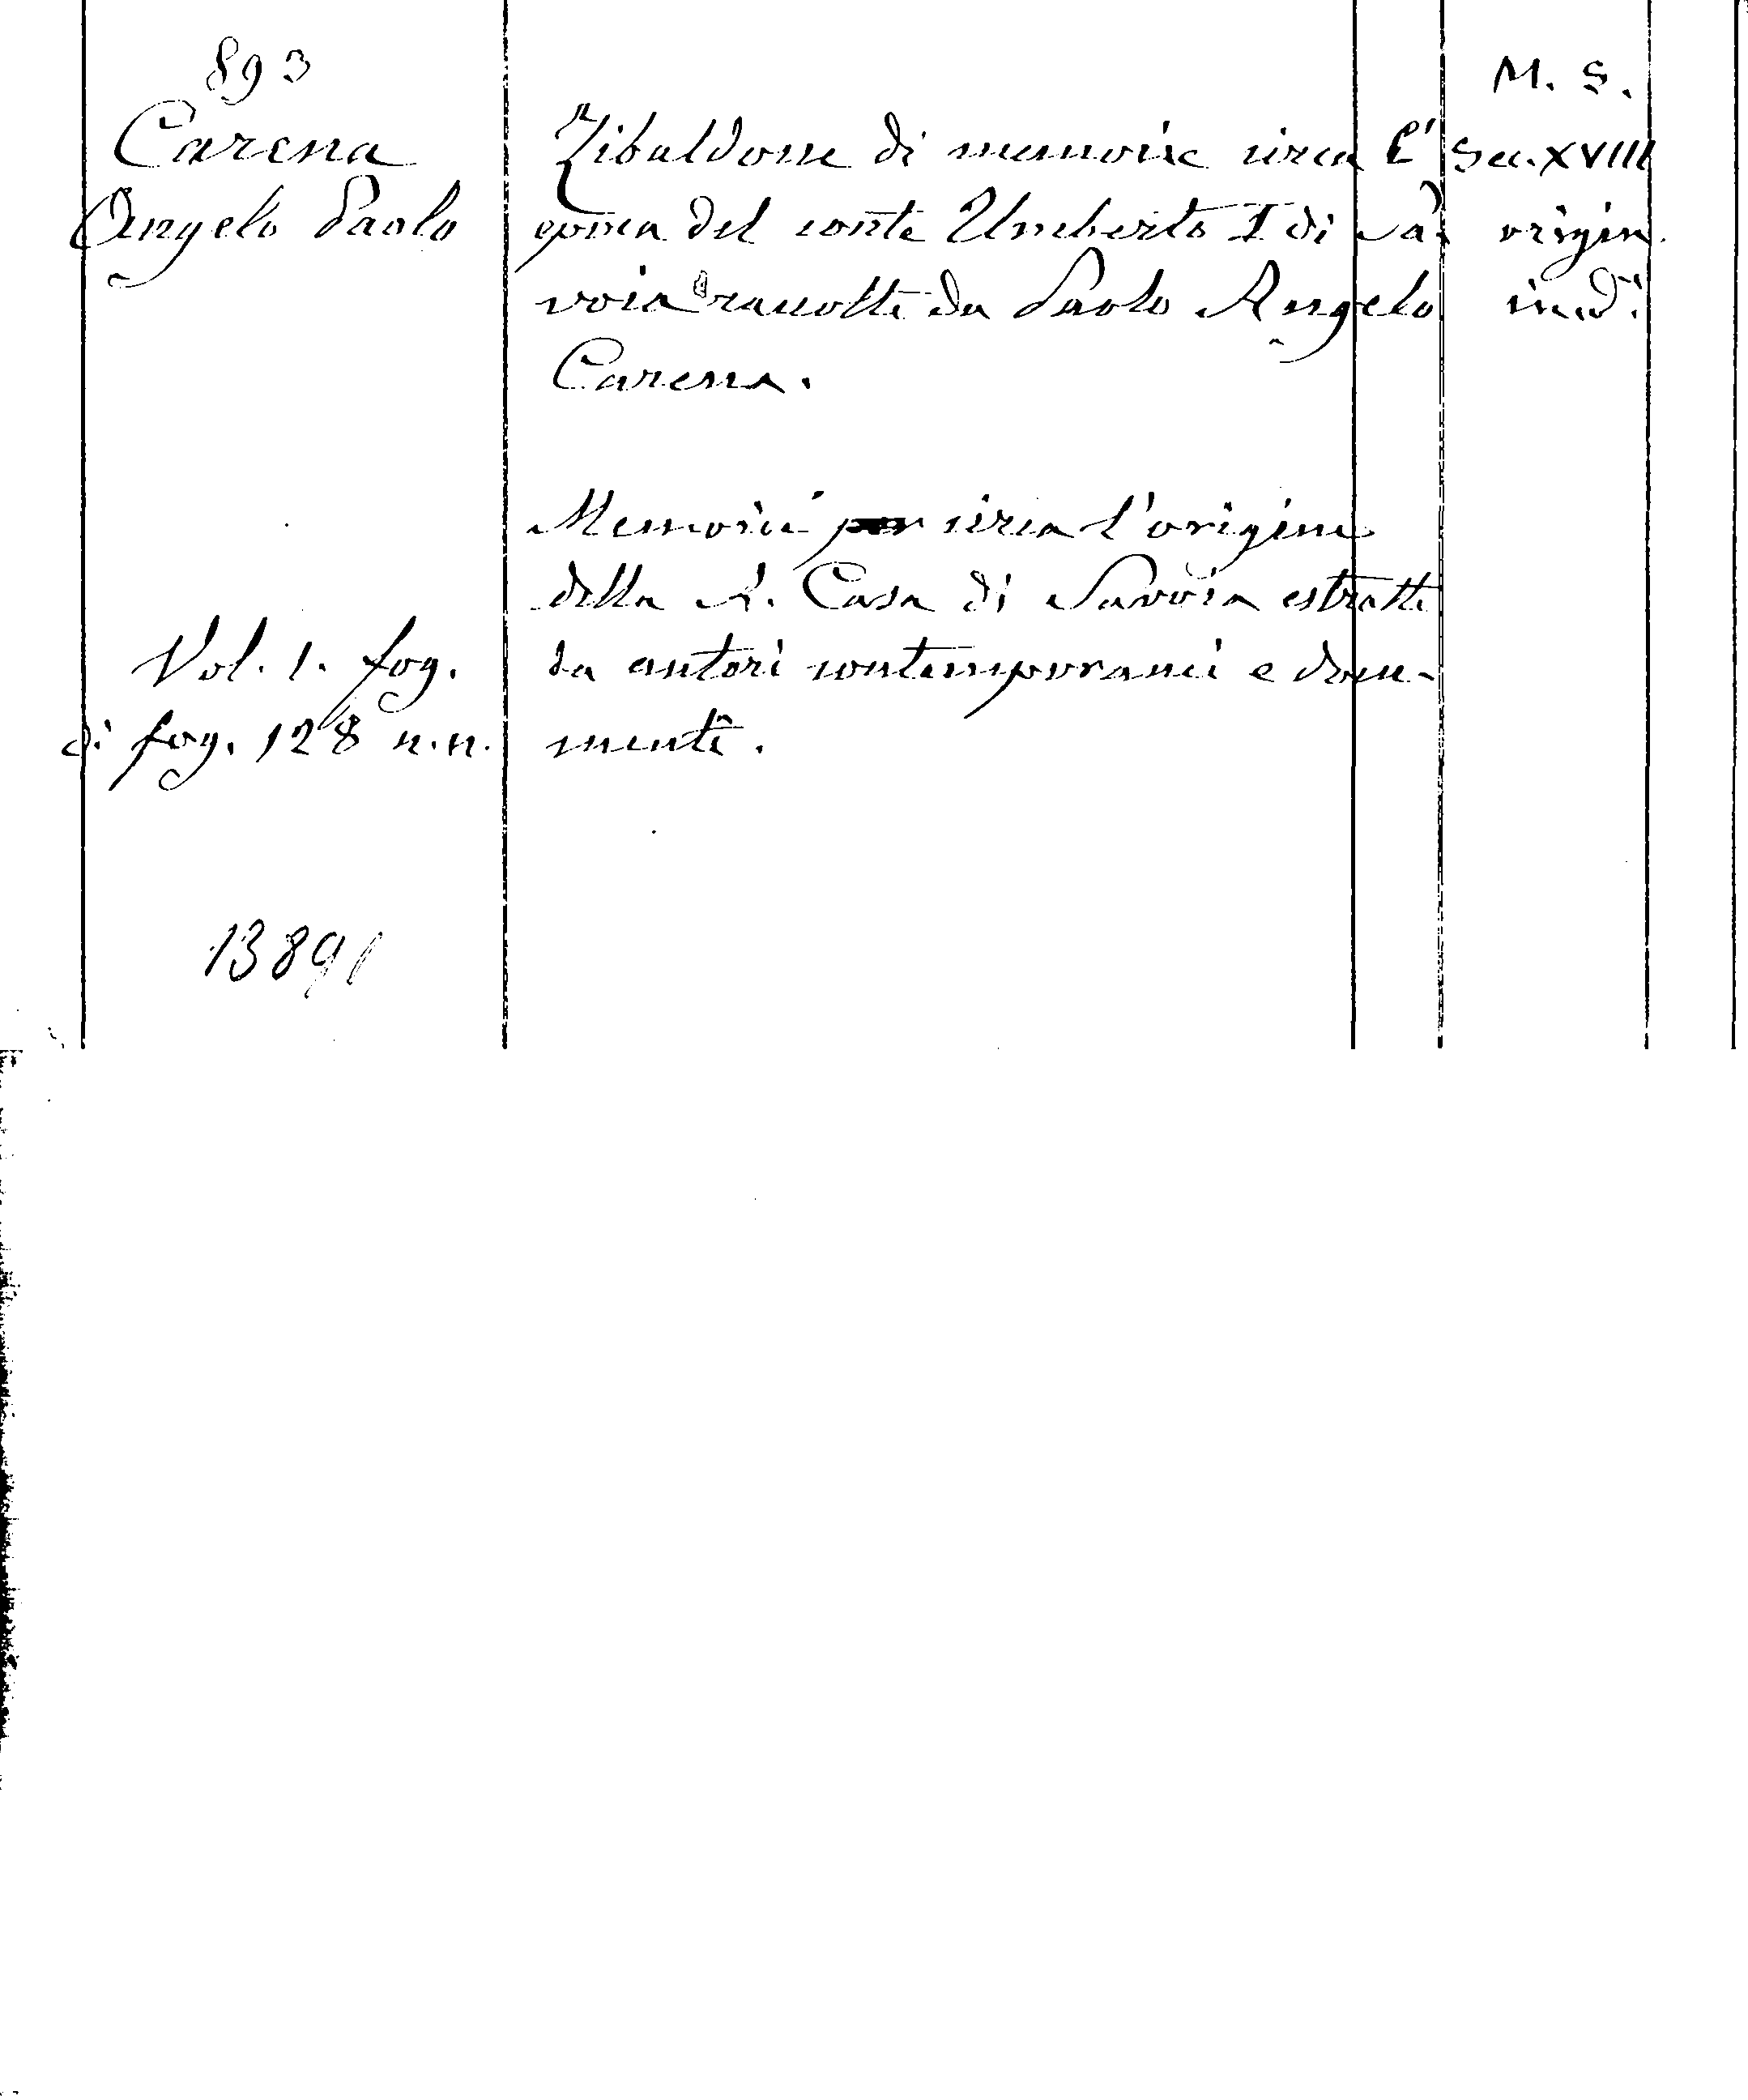 893
Carena
Angelo Paolo
Zibaldone di memorie circa l'
epoca del conte Umberto I di Sa-
voia raccolte da Paolo Angelo
Carena.
M. S.
Sec. XVIII
origin.
ined.
Memorie per circa l'origine
della R. Casa di Savoia estratte
da autori contemporanei e docu-
menti.
Vol. 1. fog.
di fog. 128 n.n.
13891